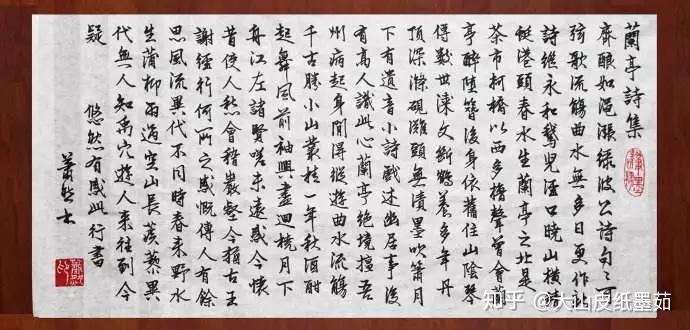 蘭亭詩集
齊釀如澠漲綠波公詩句句可
弦歌流觴曲水無多日更作
詩繼永和鵝兒涇口曉山橫蜻
蜓港頭春水生蘭亭之北是
茶市柯橋以西多櫓聲曾會蘭
亭醉墮簪後身依舊住山陰琴
傳數世漆文斷鶴養多年丹
頂深滌硯灘頭無漬墨吹簫月
下有遺音小詩戲述幽居事後
有高人識此心蘭亭絕境擅吾
州病起身閒得縱遊曲水流觴
千古勝小山叢桂一年秋酒酣
起舞風前袖興盡迴橈月下
舟江左諸賢嗟未遠感今懷
昔使人愁會稽巖壑今猶古王
謝經行何所之感慨傳人有餘
思風流異代不同時春來野水
生蒲柳雨過空山長蕨藜異
代無人知禹穴遊人來往到今
疑 悠然有感此行書
知乎 @大山皮纸墨茹